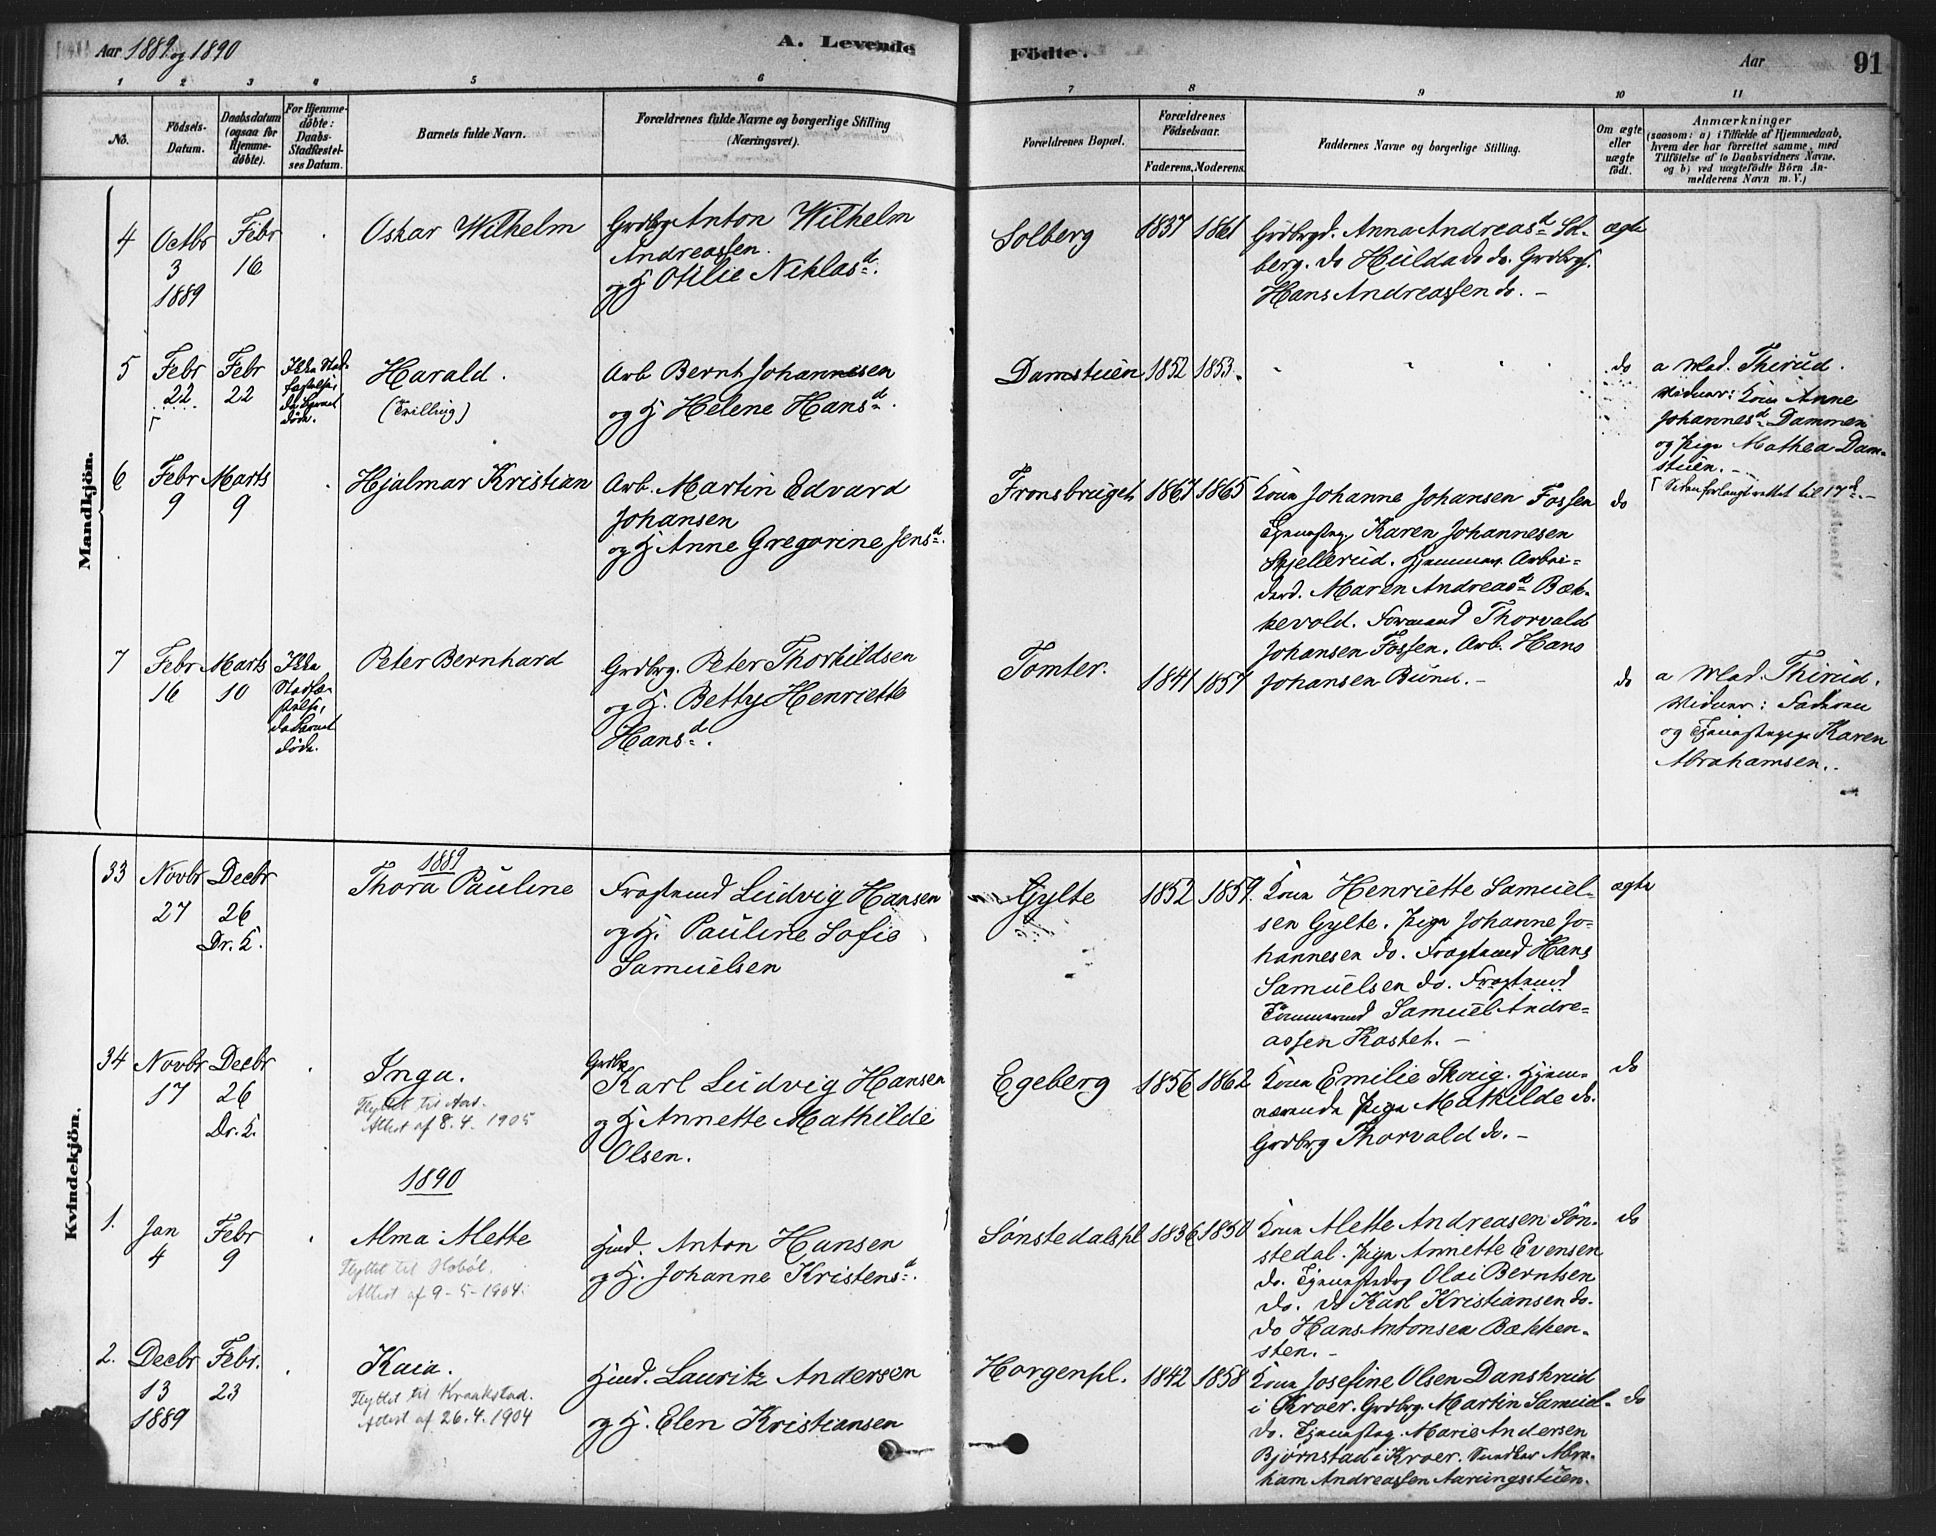 Aar 1889 og 1890
A. Levende
Födte.
Aar
91
1
2
3
4
5
6
7
8
9
10
11
No.
Födsels-
Datum.
Daabsdatum
(ogsaa for
Hjemme-
döbte).
For Hjemme-
döbte:
Daabs-
Stadfæstel-
ses Datum.
Barnets fulde Navn.
Forældrenes fulde Navne og borgerlige Stilling
(Næringsvei).
Forældrenes Bopæl.
Forældrenes
Födselsaar.
Faderens.
Moderens.
Faddernes Navne og borgerlige Stilling.
Om ægte
eller
uægte
födt.
Anmærkninger
(saasom: a) i Tilfælde af Hjemmedaab,
hvem der har forrettet samme, med
Tilföielse af to Daabsvidners Navne,
og b) ved uægtefödte Börn An-
melderens Navn m. V.)
Mandkjön.
4
Octbr
3
1889
Febr
16
Oskar Wilhelm
Grdbrg Anton Wilhelm
Andreassen
og H Otilie Niklasd.
Solberg
1837
1861
Grdbrgd. Anna Andreasd Sol-
berg. do Hulda do do. Grdbrgs.
Hans Andreassen do. –
ægte
5
Febr
22
Febr
22
Ikke Stad-
fæstelse,
da Barnet
döde.
Harald.
(Tvilling)
Arb Bernt Johannesen
og H Helene Hansd.
Damstuen
1852
1853
do
a Mad. Thirud.
Vidner: Kone Anne
Johannesd Dammen
og Pige Mathea Dam-
stuen. –
Siden forlangt rettet til 17d. –
6
Febr
9
Marts
9
Hjalmar Kristian
Arb. Martin Edvard
Johansen
og H Anne Gregorine Jensd.
Fronsbruget
1867
1865
Kone Johanne Johansen Fossen
Tjenestep. Karen Johannesen
Skjellerud. Hjemmev. Arbei-
derd. Maren Andreasd Bæk-
kevold. Formand Thorvald
Johansen Fossen. Arb. Hans
Johansen Bund. –
do
7
Febr
16
Marts
10
Ikke
Stadfæ-
stelse,
da Barnet
döde.
Peter Bernhard
Grdbrg. Peter Thorkildsen
og H. Betty Henriette
Hansd.
Tomter.
1841
1857
do
a Mad. Thirud.
Vidner: Faderen
og Tjenestepige Karen
Abrahamsen.
Kvindekjön.
1889
33
Novbr
27
Decbr
26
Dr. K.
Thora Pauline
Fragtmd Ludvig Hansen
og H. Pauline Sofie
Samuelsen
Gylte
1852
1859.
Kone Henriette Samuel-
sen Gylte. Pige Johanne Jo-
hannesen do. Fragtmd Hans
Samuelsen do. Fragtmd
Tömmermd Samuel Andre-
assen Kastet. –
ægte
34
Novbr
17
Decbr
26
Dr. K.
Inga.
Flyttet til Aas.
Attest af 8.4.1905
Grdbr
Karl Ludvig Hansen
og H Annette Mathilde
Olsen.
Egeberg
1856
1862
Kone Emilie Skoug. Hjem-
mevende Pige Mathilde do.
Grdbrg Thorvald do. –
do
1890
1.
Jan
4
Febr
9
Alma Alette
Flyttet til Hobøl.
Attest af 9-5-1904.
Hmd. Anton Hansen
og H. Johanne Kristensd.
Sönstedalspl
1836
1850
Kone Alette Andreasen Sön-
stedal. Pige Annette Evensen
do. Tjenestedrg Olai Berntsen
do. do Karl Kristiansen do.
do Hans Antonsen Bækken-
sten. –
do
2.
Decbr
13
1889
Febr.
23
Kaia.
Flyttet til Kraakstad.
Attest af 26.4.1904
Hmd. Lauritz Andersen
og H. Elen Kristiansen
Horgenpl.
1842
1858
Kone Josefine Olsen Danskrud
i Kroer. Grdbrg. Martin Samuel-
do. Tjenestep. Marie Andersen
Bjørnstad i Kroer. Snedker Abra-
ham Andreassen Aarungsstuen.
do